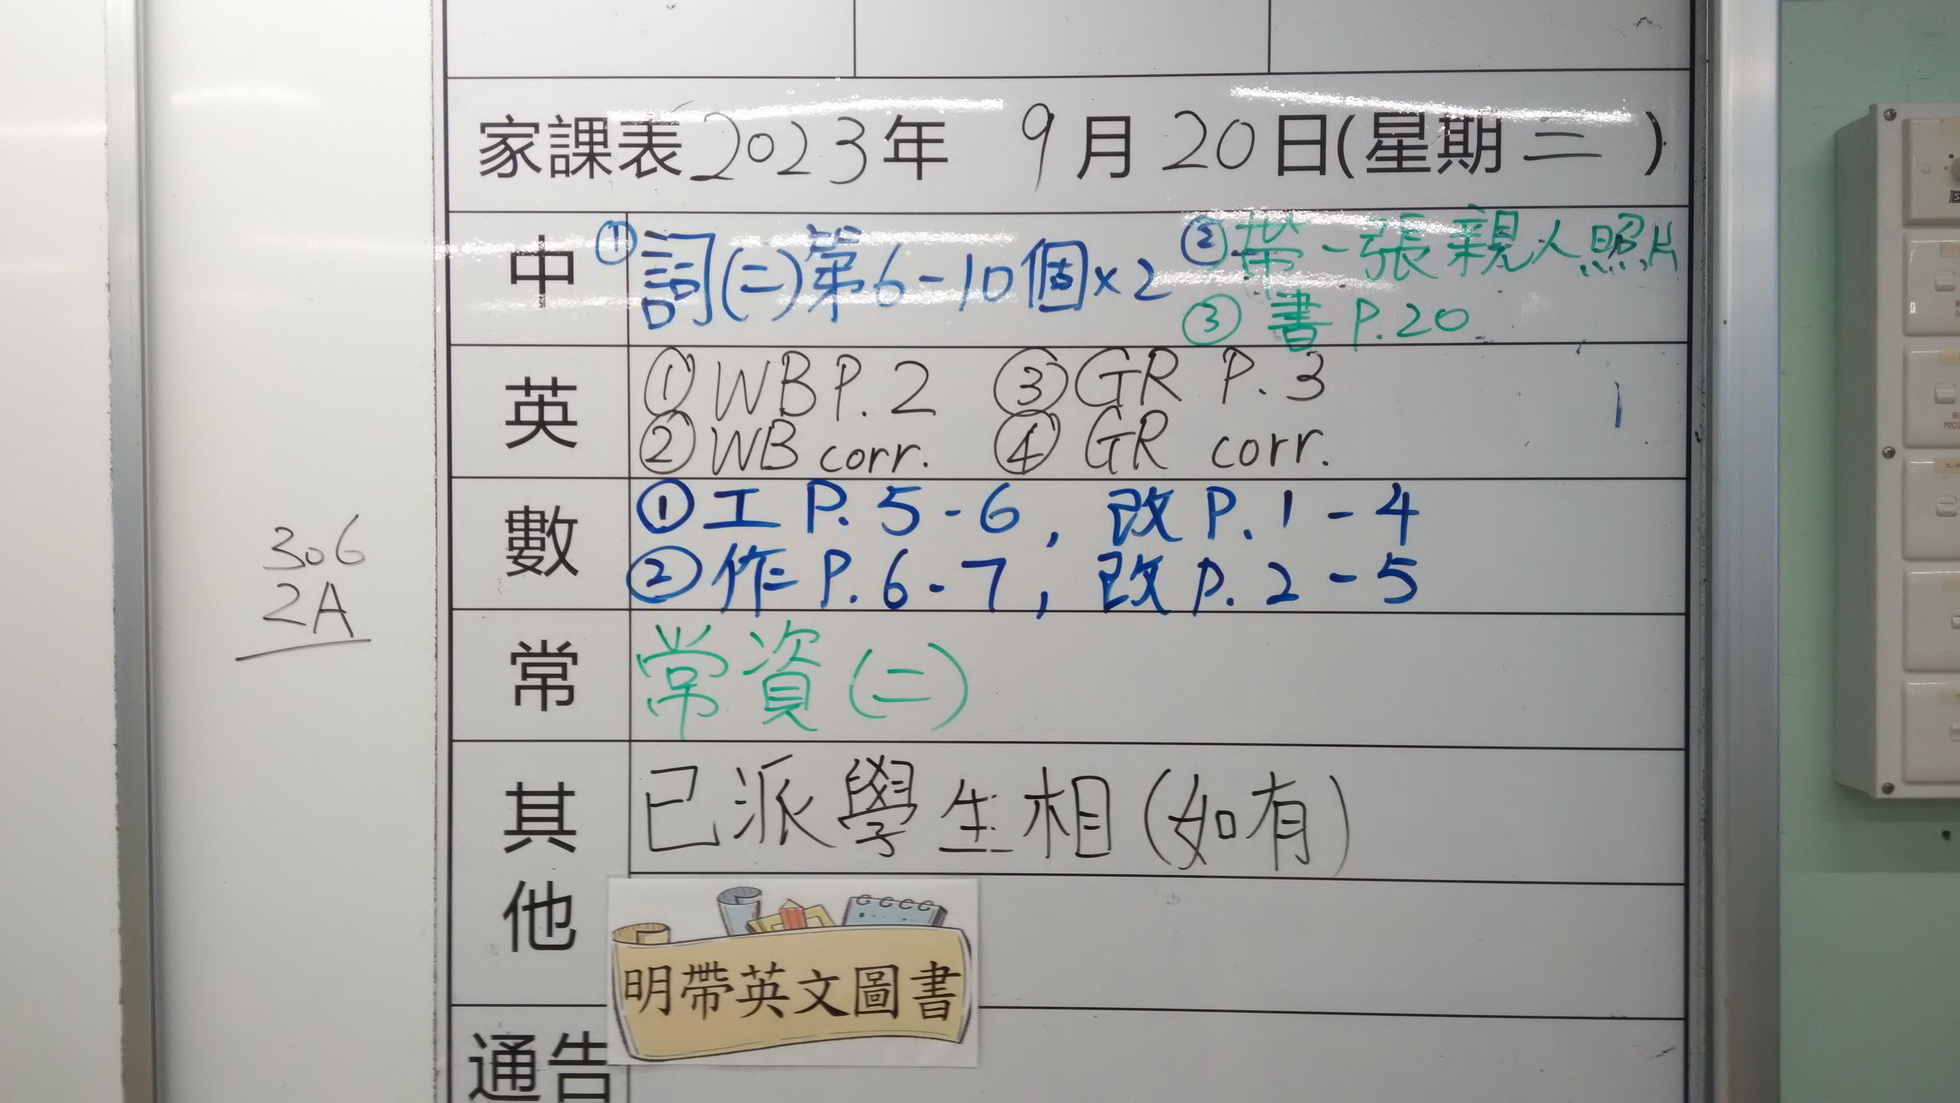 家課表 2023年 9月20日(星期二)
中 ①詞(二)第6-10個×2 ②帶一張親人照片
③書 P.20
英 ①WB P.2 ③GR P.3
②WB corr. ④GR corr.
數 ①工 P.5-6, 改 P.1-4
②作 P.6-7, 改 P.2-5
306
2A
常 常資(二)
其他 已派學生相(如有)
明帶英文圖書
通告